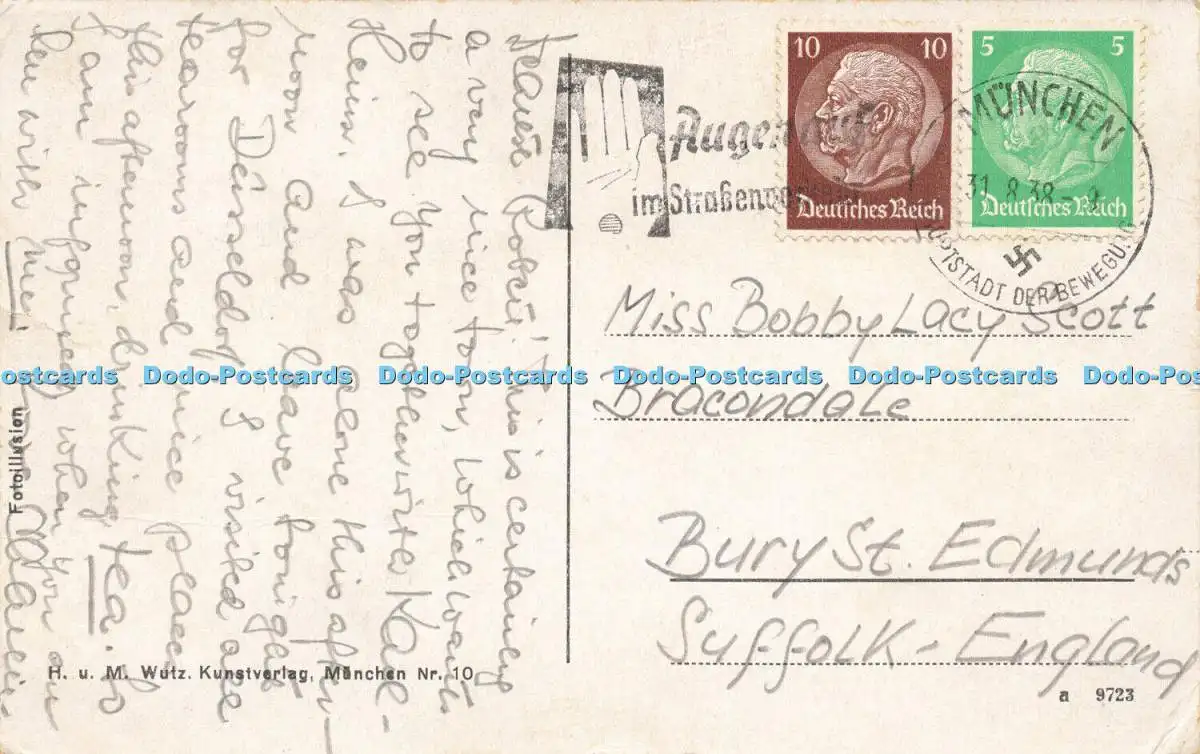 10 10
Deutsches Reich
5 5
Deutsches Reich
MÜNCHEN
31.8.38
HAUPTSTADT DER BEWEGUNG
im Straßen
Miss Bobby Lacy Scott
Bracondale
Bury St. Edmunds
Suffolk - England
This is certainly
a very nice town, which wants
to see you together with Karl-
Heinz. I was alone this after-
noon and leave tonight
for Düsseldorf. I visited all
tearooms and nice places
this afternoon, drinking tea. So
I am informed when you are
here with me!
Fotoillusion
H. u. M. Wutz. Kunstverlag, München Nr. 10
a 9723
ostcards Dodo-Postcards Dodo-Postcards Dodo-Postcards Dodo-Postcards Dodo-Po